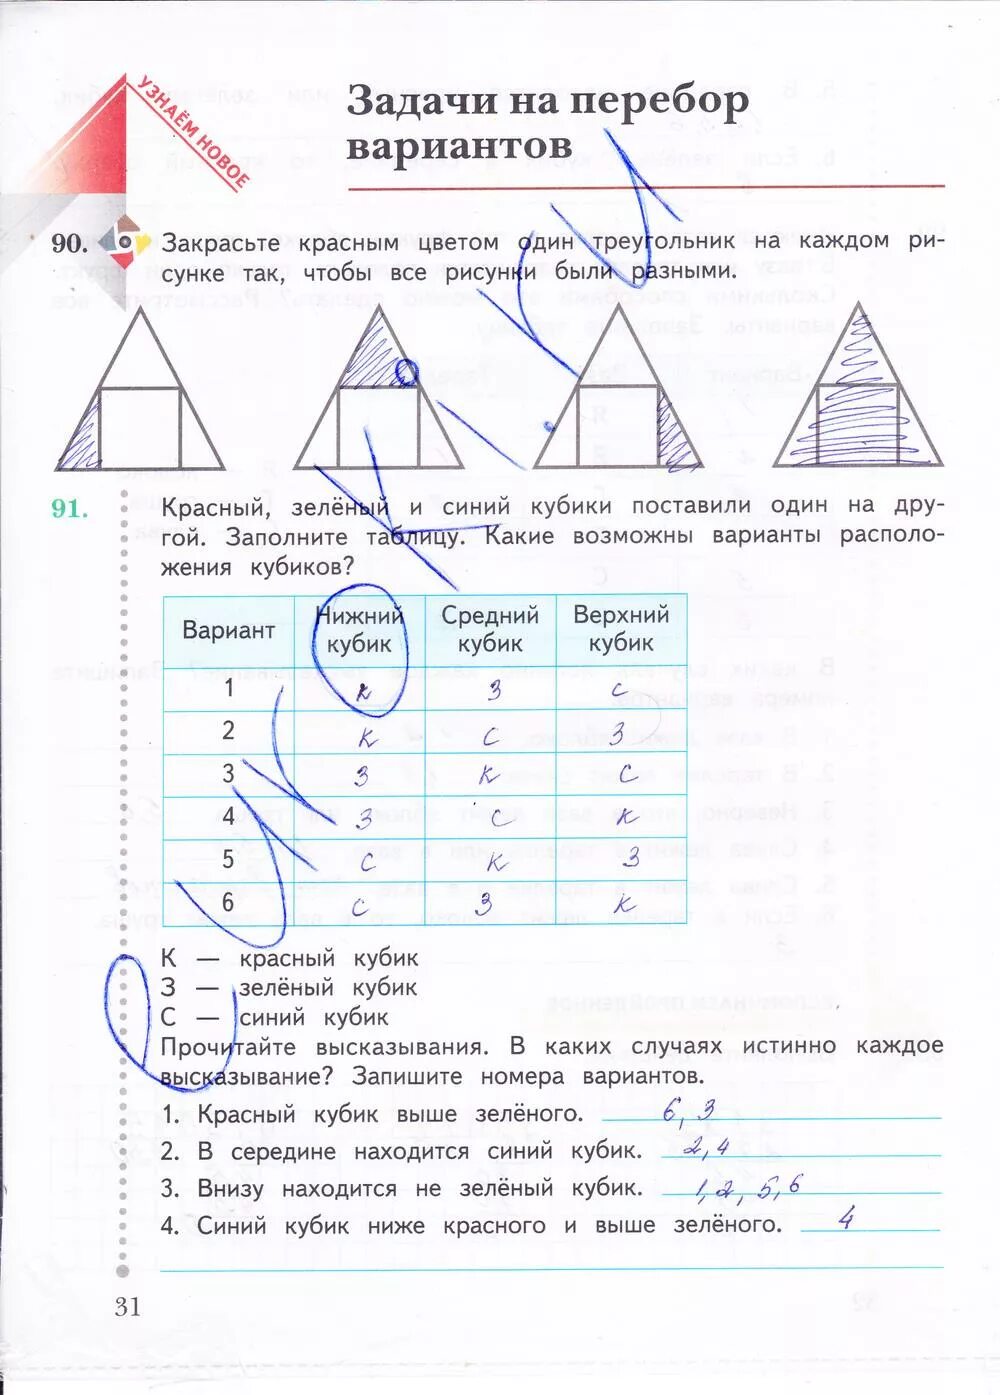 УЗНАЁМ НОВОЕ
Задачи на перебор
вариантов
90. Закрасьте красным цветом один треугольник на каждом ри-
сунке так, чтобы все рисунки были разными.
91. Красный, зелёный и синий кубики поставили один на дру-
гой. Заполните таблицу. Какие возможны варианты располо-
жения кубиков?
Вариант Нижний кубик Средний кубик Верхний кубик
1 к з с
2 к с з
3 з к с
4 з с к
5 с к з
6 с з к
К — красный кубик
З — зелёный кубик
С — синий кубик
Прочитайте высказывания. В каких случаях истинно каждое
высказывание? Запишите номера вариантов.
1. Красный кубик выше зелёного. 6, 3
2. В середине находится синий кубик. 2, 4
3. Внизу находится не зелёный кубик. 1, 2, 5, 6
4. Синий кубик ниже красного и выше зелёного. 4
31